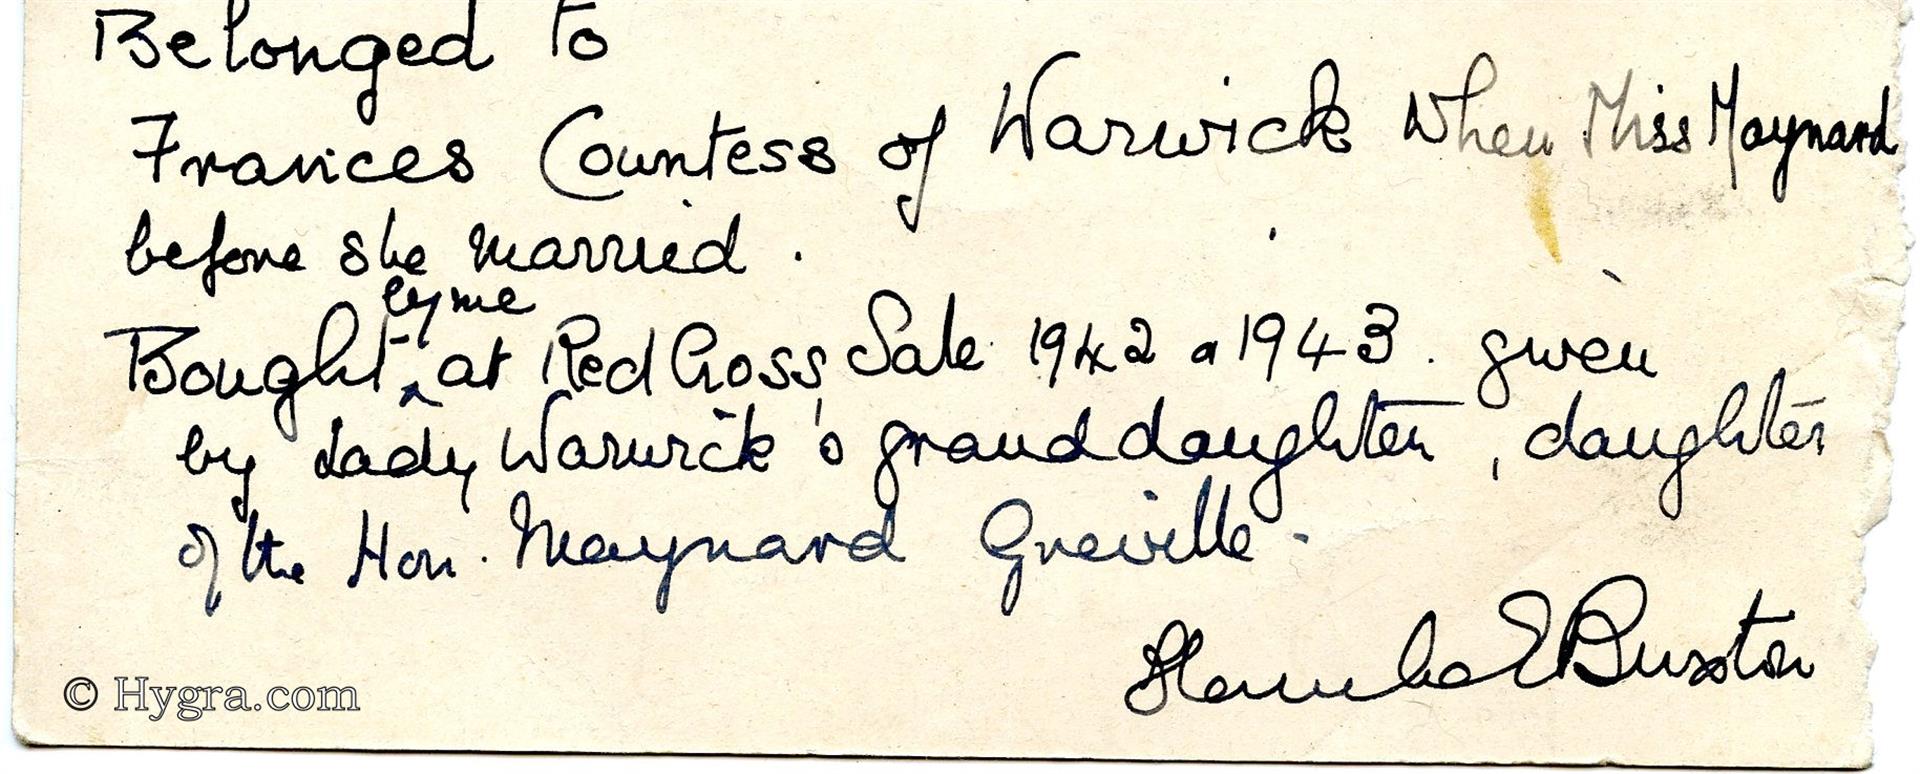 Belonged to
Frances Countess of Warwick When Miss Maynard
before she married.
by me
Bought at Red Cross Sale 1942 or 1943. given
by Lady Warwick's granddaughter, daughter
of the Hon. Maynard Greville.
E Buxton
© Hygra.com